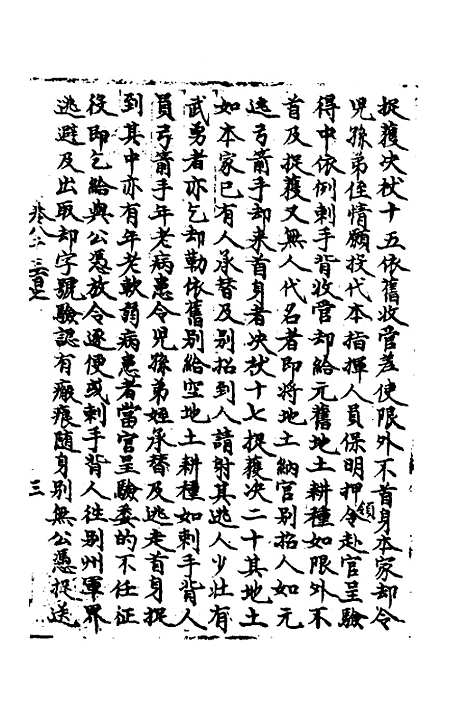 捉獲决杖十五依舊收管差使限外不首身本家却令
兒孫弟侄情願投代本指揮人員保明押領令赴官呈驗
得中依例刺手背收管却給元舊地土耕種如限外不
首及捉獲又無人代名者即將地土納官别招人如元
逃弓箭手却来首身者决杖十七捉獲决二十其地土
如本家已有人承替及别招到人請射其逃人少壮有
武勇者亦乞却勒依舊别給空地土耕種如刺手背人
員弓箭手年老病患令兒孫弟姪承替及逃走首身捉
到其中亦有年老軟弱病患者當官呈驗委的不任征
役即乞給與公憑放令逐便或刺手背人徃别州軍界
逃避及出取却字號驗認有瘢痕随身别無公憑捉送
三